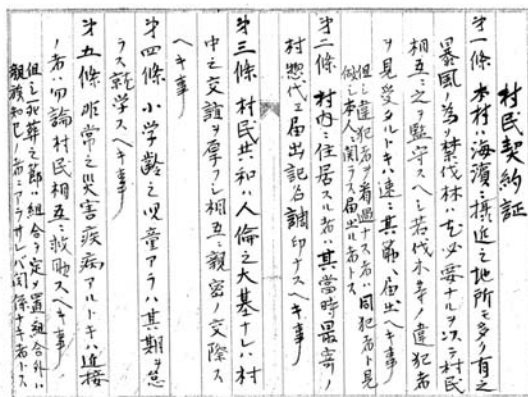 村民契約証
第一條 本村ハ海濱ニ接近之地所モ多ク有之
暴風ノ為メ禁伐林ハ尤必要ナルヲ以テ村民
相互ニ之ヲ監守スヘシ若伐木等ノ違犯者
ヲ見受タルトキハ速ニ其節ヘ届出ヘキ事
但シ違犯者ヲ看過ナス者ハ同犯者ト見
做シ本人ニ関ラス届出ル者トス
第二條 村内ニ住居スル者ハ其當時最寄ノ
村惣代エ届出記名調印ナスヘキ事
第三條 村民共和ハ人倫之大基ナレハ村
中之交誼ヲ厚フシ相互ニ親密ノ交際ス
ヘキ事
第四條 小学齢之児童アラハ其期ヲ怠
ラス就学スヘキ事
第五條 非常之災害疾病アルトキハ近接
ノ者ハ勿論村民相互ニ救助スヘキ事
但シ死葬之節ハ組合ヲ定メ置組合外ハ
親族知己ノ者ニアラサレバ関係ナキ者トス